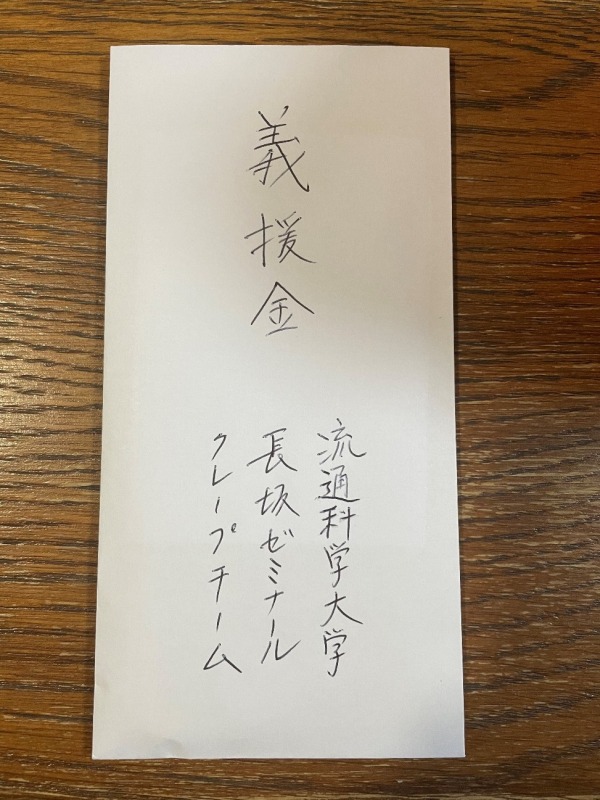 義援金
流通科学大学
長坂ゼミナール
クレープチーム